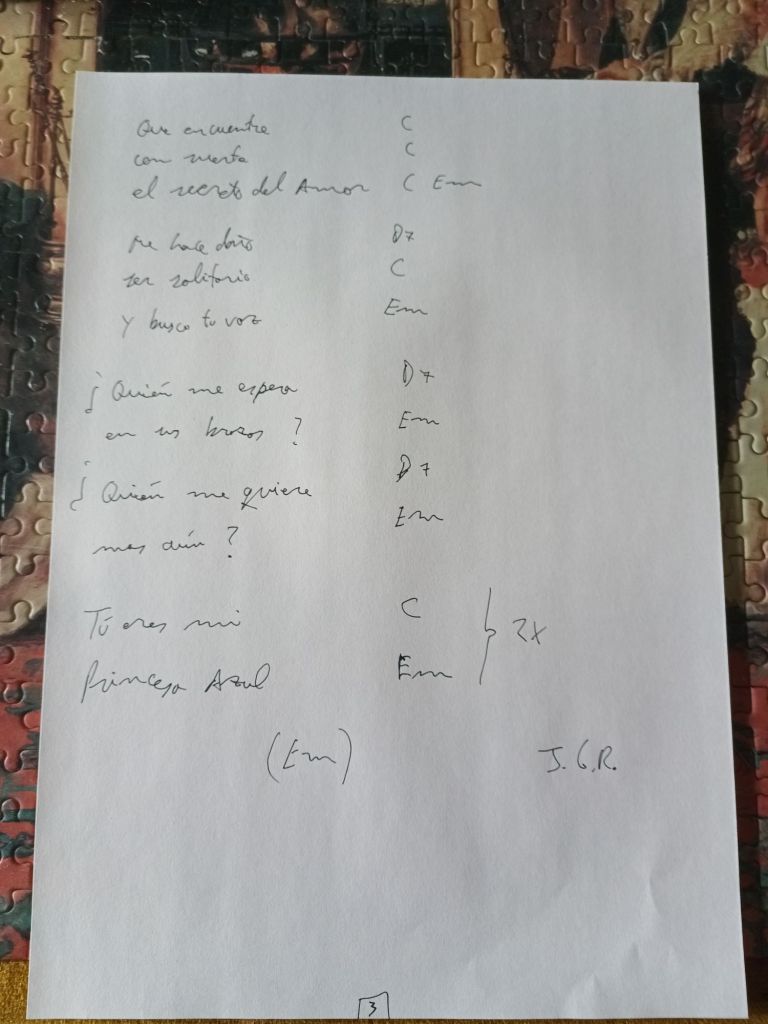 Que encuentre C
con suerte C
el secreto del Amor C Em
Me hace daño D7
ser solitario C
Y busco tu voz Em
¿Quién me espera D7
en sus brazos? Em
¿Quién me quiere D7
mas aún? Em
Tú eres mi C
Princesa Azul Em
2X
(Em)
J. G. R.
3